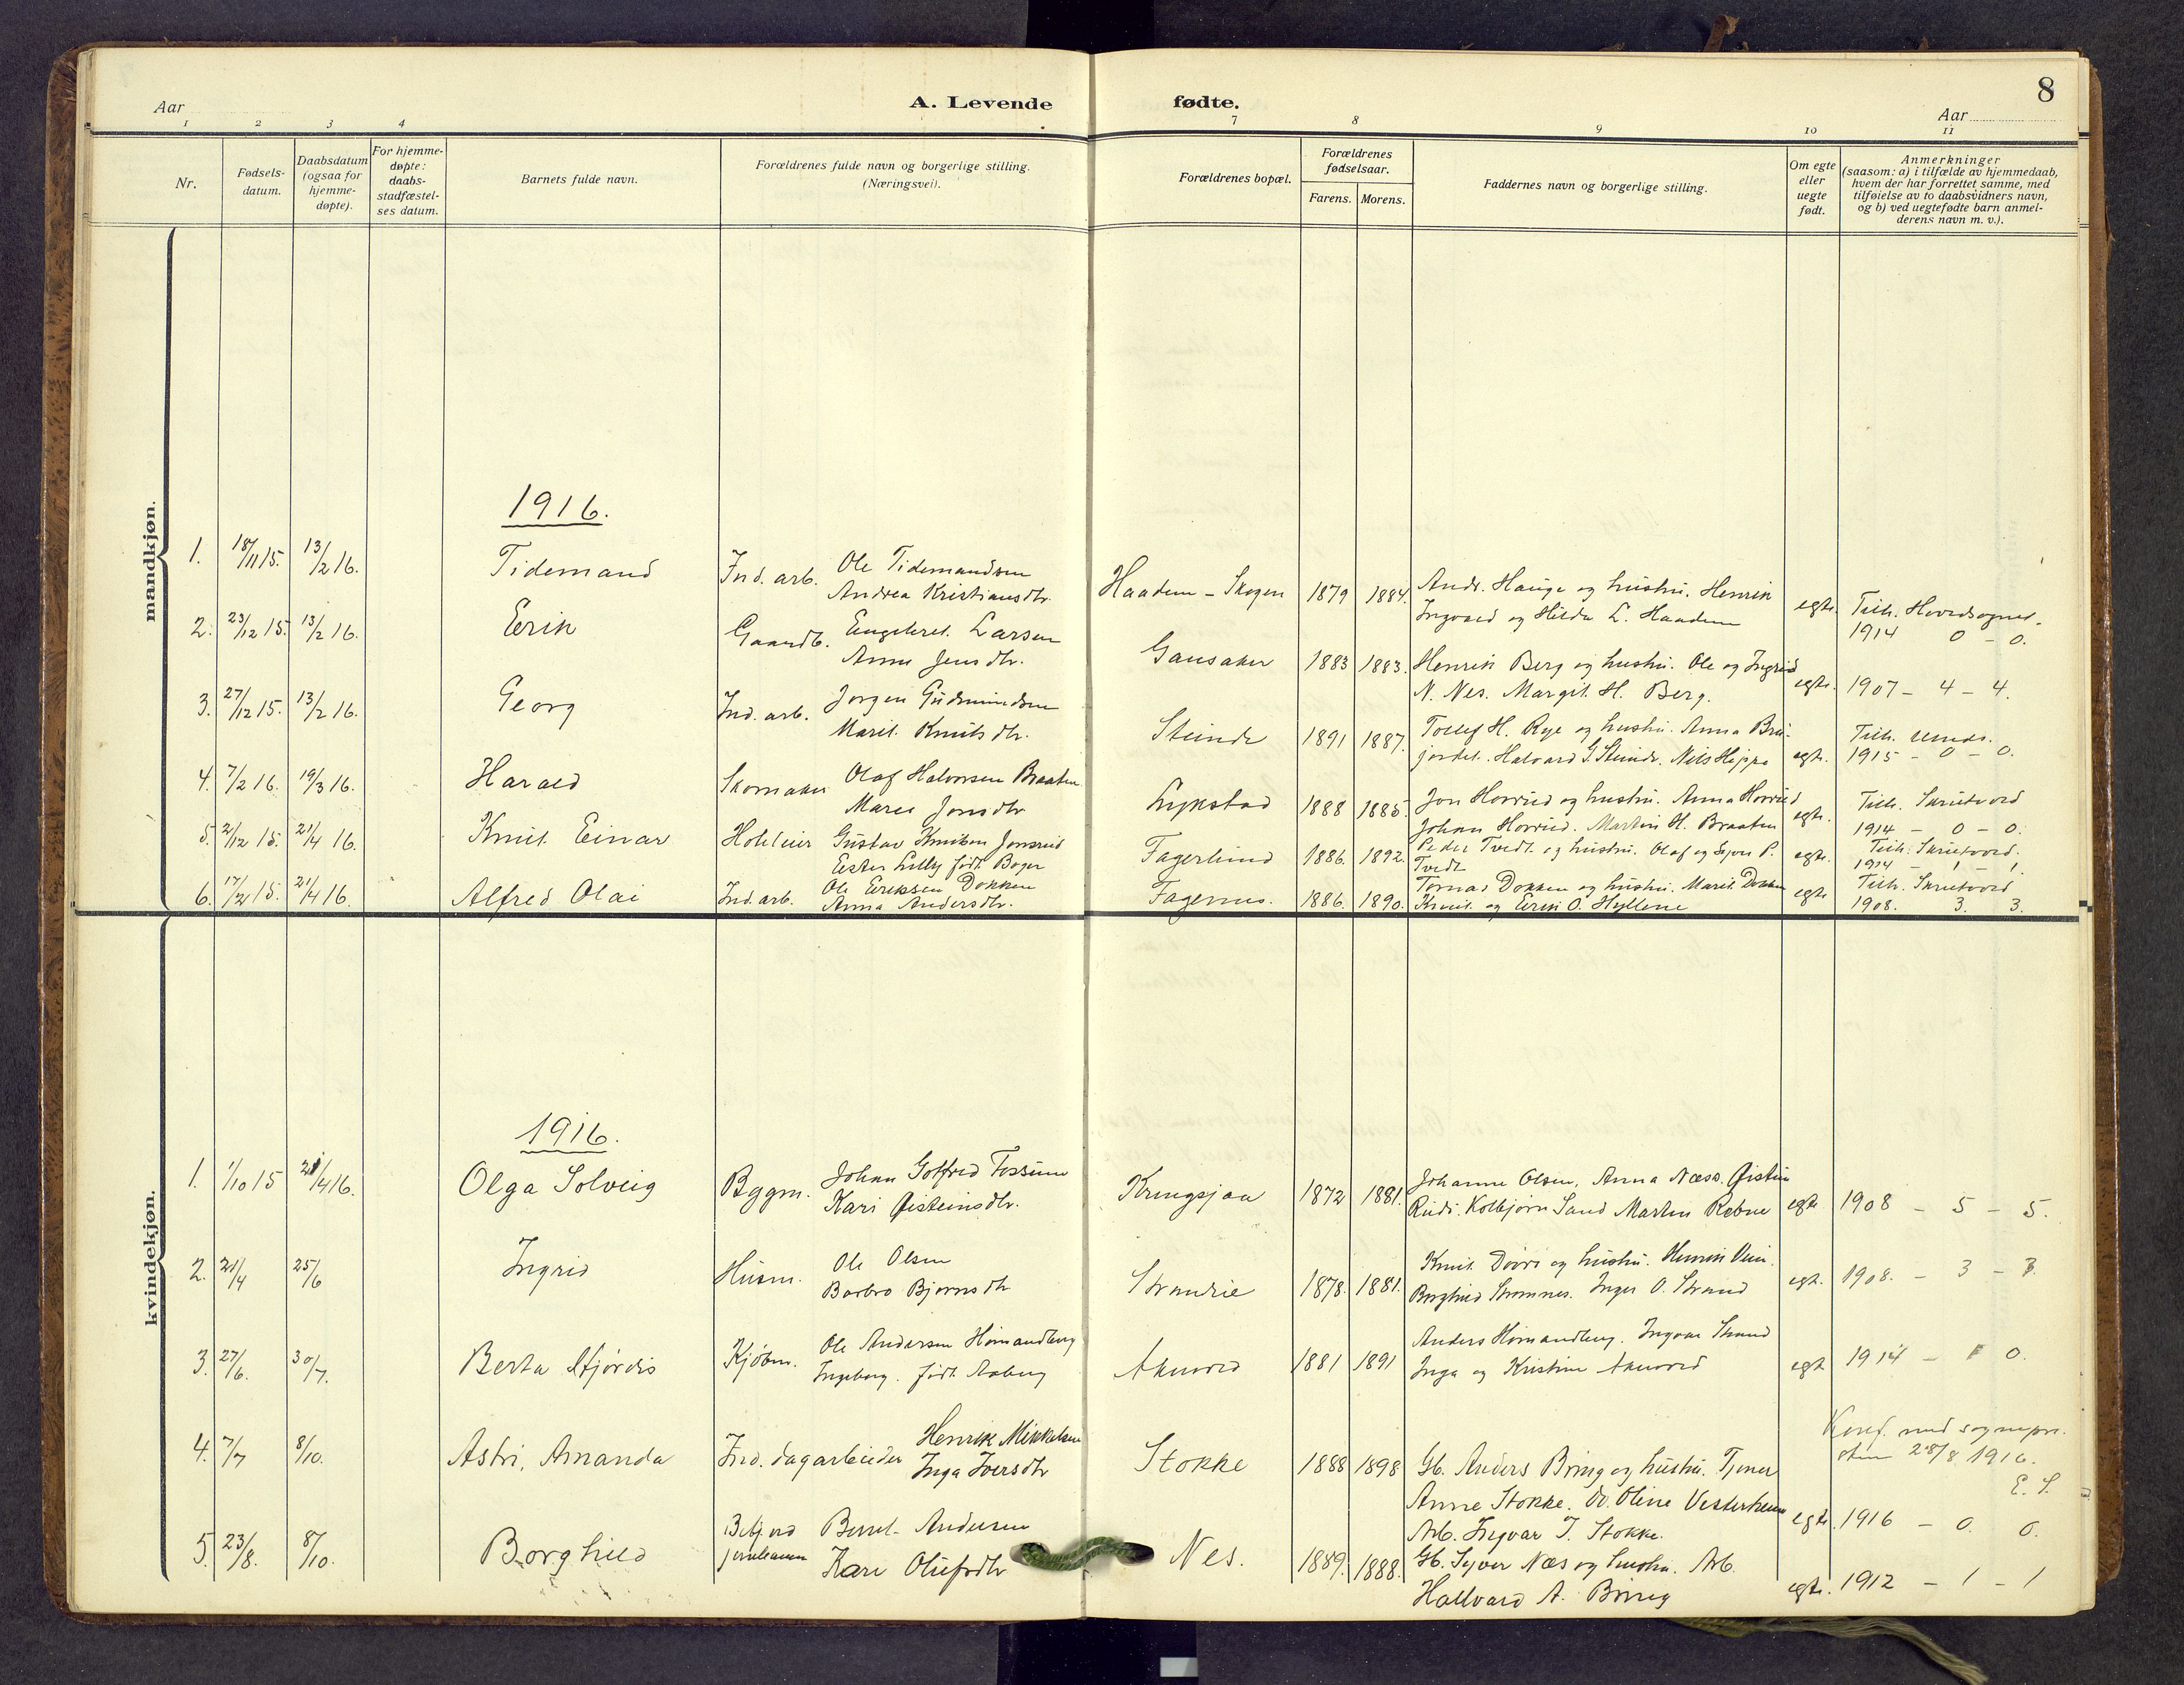 8
Aar
A. Levende fødte.
Aar
1 2 3 4 7 8 9 10 11
Nr.
Fødsels-
datum.
Daabsdatum
(ogsaa for
hjemme-
døpte).
For hjemme-
døpte:
daabs-
stadfæstel-
ses datum.
Barnets fulde navn.
Forældrenes fulde navn og borgerlige stilling.
(Næringsvei).
Forældrenes bopæl.
Forældrenes
fødselsaar.
Farens. Morens.
Faddernes navn og borgerlige stilling.
Om egte
eller
uegte
født.
Anmerkninger
(saasom: a) i tilfælde av hjemmedaab,
hvem der har forrettet samme, med
tilføielse av to daabsvidners navn,
og b) ved uegtefødte barn anmel-
derens navn m. v.).
mandkjøn.
1916.
1. 18/11 15. 13/2 16. Tidemand Ind. arb. Ole Tidemandsen
Andrea Kristiansdtr.
Haadem - Skogen 1879 1884. Andr. Hauge og hustru. Henrik
Ingvard og Hilda L. Haadem
egte. Tilh. Hovedsognet.
1914 0 - 0.
2. 23/12 15. 13/2 16. Erik Gaardb. Engebret Larsen
Anne Jensdtr.
Gausaker 1883 1883. Henrik Berg og hustru. Ole og Ingrid
N. Nes. Margit H. Berg.
egte. 1907 - 4 - 4.
3. 27/12 15. 13/2 16. Georg Ind. arb. Jørgen Gudmundsen
Marit Knutsdtr.
Steinde 1891 1887. Tollef H. Rye og hustru. Anna Bru-
jordet. Halvard G. Steinde. Nils Hippe
egte. 1915 - 0 - 0.
4. 7/2 16. 19/3 16. Harald Skomaker Olaf Halvorsen Braaten
Marie Jonsdtr
1888 1885. Jon Horrud og hustru. Anna Horrud
Johan Horrud. Martin H. Braaten
egte. Tilh. Skrutvold
1914 - 0 - 0.
5. 2/12 15. 21/4 16. Knut Einar Hoteleier Gustav Knutsen Jonsrud
Ester Lilly født Boger
Fagerlund 1886. 1892. Peder Tvedt og hustru. Olaf og P.
Tvedt
egte. Tilh. Skrutvold.
1914 - 1 1.
6. 17/12 15. 21/4 16. Alfred Olai Ind. arb. Ole Eriksen Dokken
Anna Andersdtr.
Fagernes. 1886. 1890. Tomas Dokken og hustru. Marit Dokken
Knut og Erik O. Hyllene
egte Tilh. Skrutvold
1908. 3. 3.
kvindekjøn.
1916.
1. 1/10 15 21/4 16. Olga Solveig Bygm. Johan Gotfred Fossum
Kari Øisteinsdtr.
Kringsjaa 1872 1881. Johanne Olsen, Anna Næss. Øistein
Rudi. Kolbjørn Sand Martin Rebne
egte 1908 - 5 - 5.
2. 21/4 25/6 Ingrid Husm. Ole Olsen
Barbro Bjørnsdtr
Strandeie 1878. 1881. Knut Døvre og hustru. Henrik
Borghild Strømnes. Inger O. Strand
egte. 1908. - 3 - 3.
3. 27/6. 30/7. Berta Hjørdis Kjøbm. Ole Andersen Hømandberg
Ingeborg født Aaberg
1881 1891 Anders Hømandberg. Ingvar Strand
Inga og Kristine
egte 1914 - 0.
4. 7/7 8/10. Astri, Amanda Ind. dagarbeider Henrik Mikkelsen
Inga Iversdtr
Stokke 1888 1898 Gb. Anders Bring og hustru. Tjener
Anne Stokke. Do. Oline Vesterheim
Arb. Ingvar I. Stokke.
Konf. med sognepre-
sten 28/8 1916.
E. S.
egte. 1916 - 0. 0.
5. 23/8. 8/10. Borghild Betj. ved
jernbanen
Bernt Andersen
Kari Olufsdtr
Nes. 1889. 1888. Gb. Syver Næs og hustru. Arb.
Hallvard A. Bring
egte. 1912 - 1 - 1